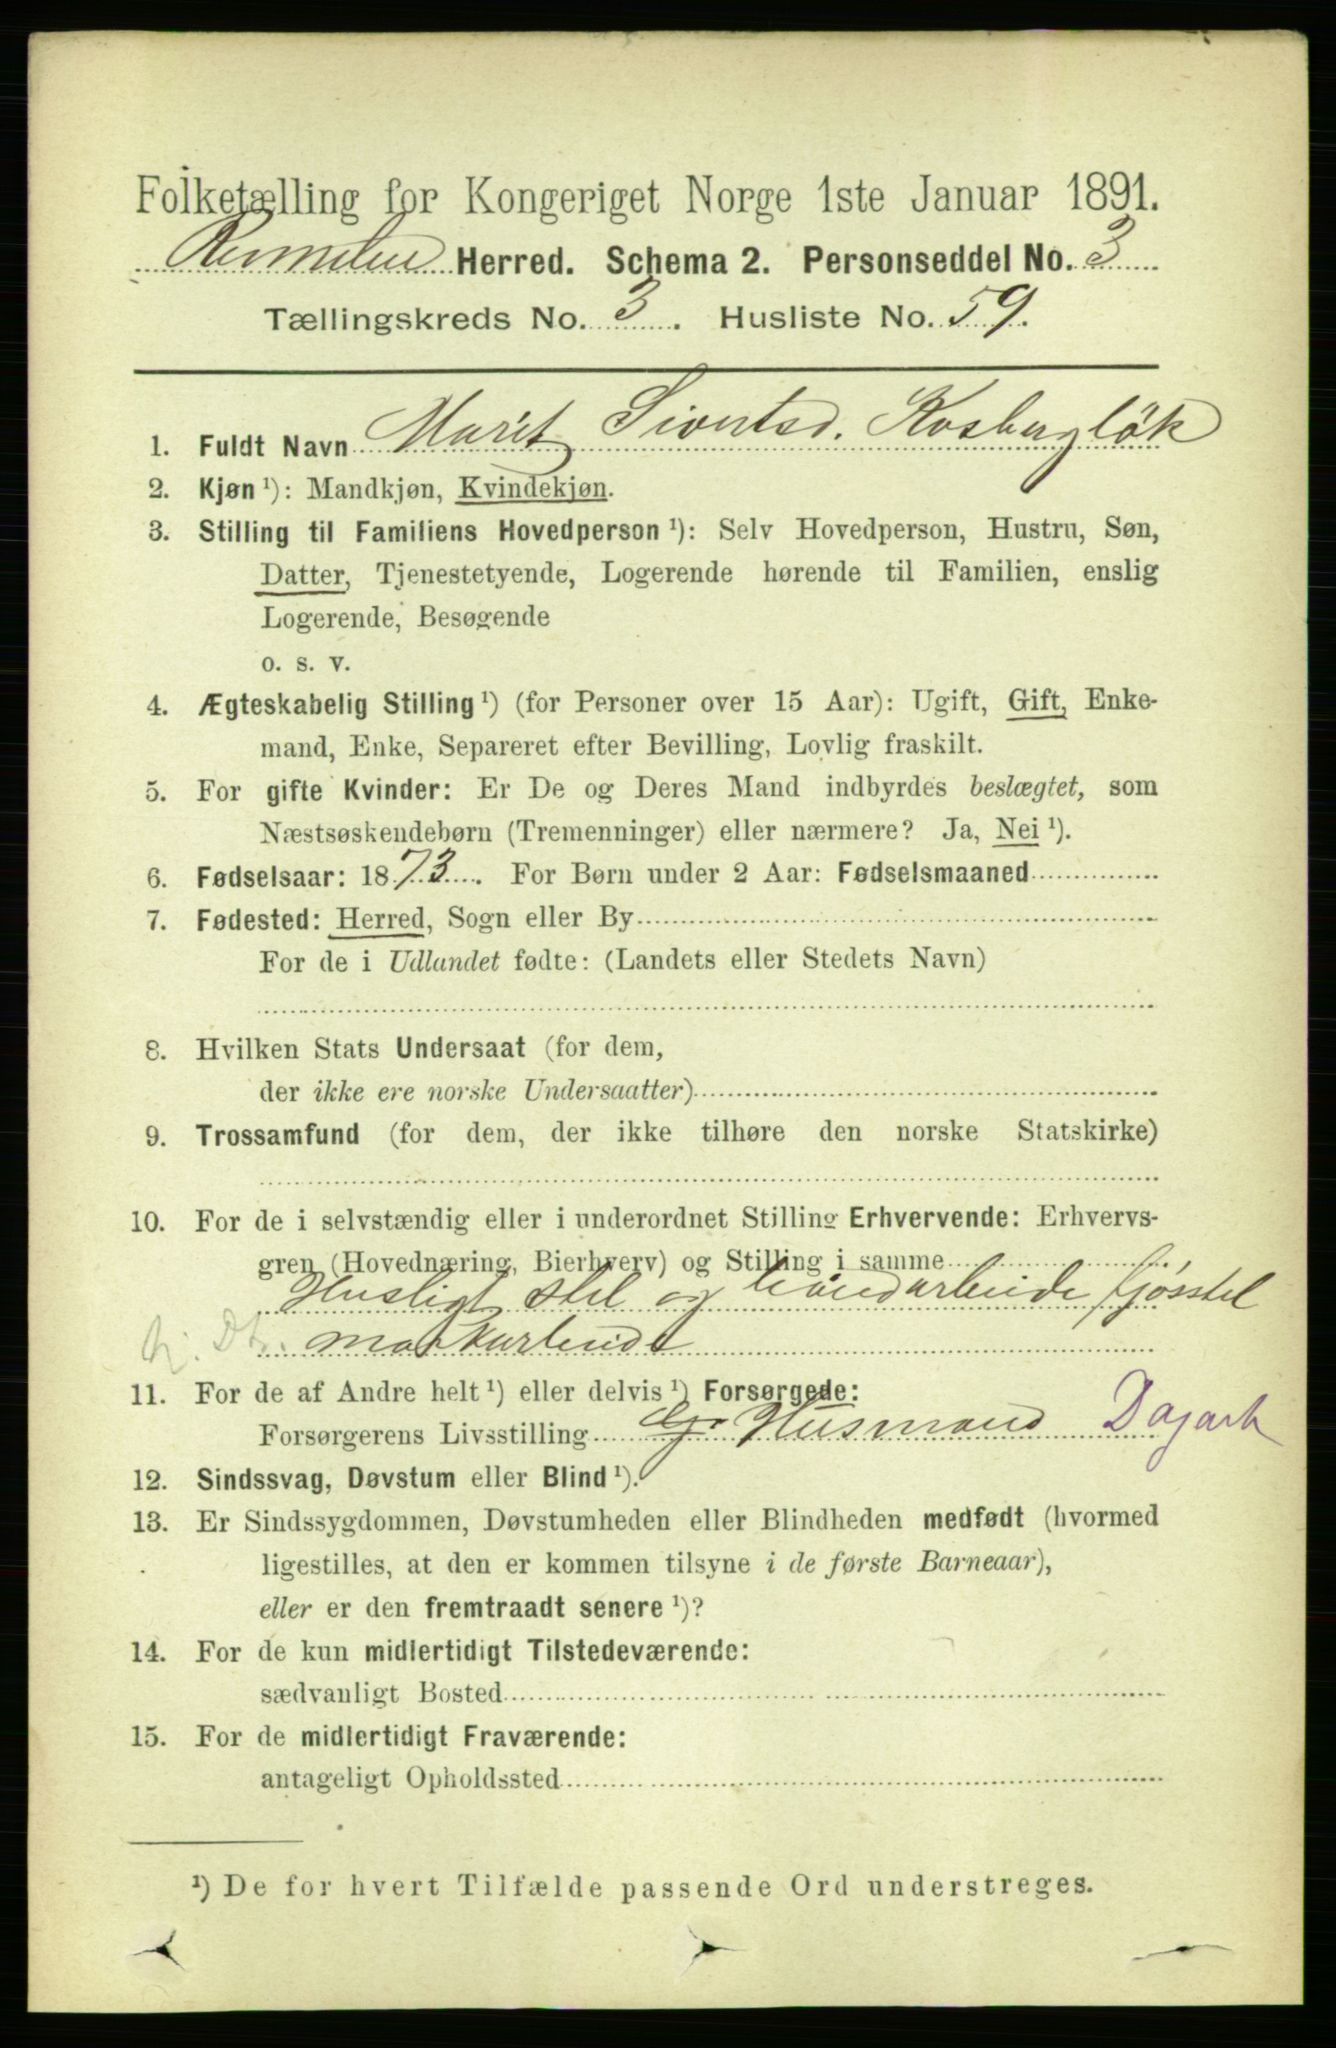 Folketælling for Kongeriget Norge 1ste Januar 1891.
Rennebu Herred. Schema 2. Personseddel No. 3
Tællingskreds No. 3. Husliste No. 59.
1. Fuldt Navn Marit Sivertsd. Kosbergløk
2. Kjøn ¹): Mandkjøn, Kvindekjøn.
3. Stilling til Familiens Hovedperson ¹): Selv Hovedperson, Hustru, Søn,
Datter, Tjenestetyende, Logerende hørende til Familien, enslig
Logerende, Besøgende
o. s. v.
4. Ægteskabelig Stilling ¹) (for Personer over 15 Aar): Ugift, Gift, Enke-
mand, Enke, Separeret efter Bevilling, Lovlig fraskilt.
5. For gifte Kvinder: Er De og Deres Mand indbyrdes beslægtet, som
Næstsøskendebørn (Tremenninger) eller nærmere? Ja, Nei ¹).
6. Fødselsaar: 1873. For Børn under 2 Aar: Fødselsmaaned
7. Fødested: Herred, Sogn eller By
For de i Udlandet fødte: (Landets eller Stedets Navn)
8. Hvilken Stats Undersaat (for dem,
der ikke ere norske Undersaatter)
9. Trossamfund (for dem, der ikke tilhøre den norske Statskirke)
10. For de i selvstændig eller i underordnet Stilling Erhvervende: Erhvervs-
gren (Hovednæring, Bierhverv) og Stilling i samme
Husligt stel og håndarbeide fjösstel
h. Dt. markarbeide
11. For de af Andre helt ¹) eller delvis ¹) Forsørgede:
Forsørgerens Livsstilling Husmand Dagarb
12. Sindssvag, Døvstum eller Blind ¹).
13. Er Sindssygdommen, Døvstumheden eller Blindheden medfødt (hvormed
ligestilles, at den er kommen tilsyne i de første Barneaar),
eller er den fremtraadt senere ¹)?
14. For de kun midlertidigt Tilstedeværende:
sædvanligt Bosted
15. For de midlertidigt Fraværende:
antageligt Opholdssted
¹) De for hvert Tilfælde passende Ord understreges.